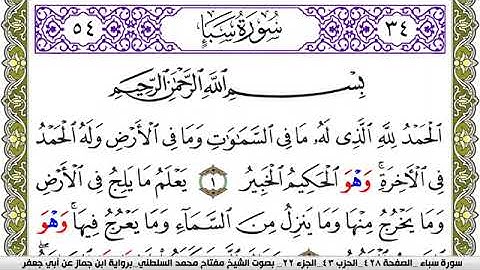 ٣٤ سُورَةُ سَبَإٍ ٥٤
بِسْمِ اللَّهِ الرَّحْمَٰنِ الرَّحِيمِ
الْحَمْدُ لِلَّهِ الَّذِى لَهُۥ مَا فِى السَّمَٰوَٰتِ وَمَا فِى الْأَرْضِ وَلَهُ الْحَمْدُ
فِى الْأَخِرَةِ ۚ وَهْوَ الْحَكِيمُ الْخَبِيرُ ١ يَعْلَمُ مَا يَلِجُ فِى الْأَرْضِ
وَمَا يَخْرُجُ مِنْهَا وَمَا يَنزِلُ مِنَ السَّمَآءِ وَمَا يَعْرُجُ فِيهَا ۚ وَهْوَ
سورة سباء _الصفحة ٤٢٨_ الحزب ٤٣_ الجزء ٢٢_ بصوت الشيخ مفتاح محمد السلطني_برواية ابن جماز عن أبي جعفر